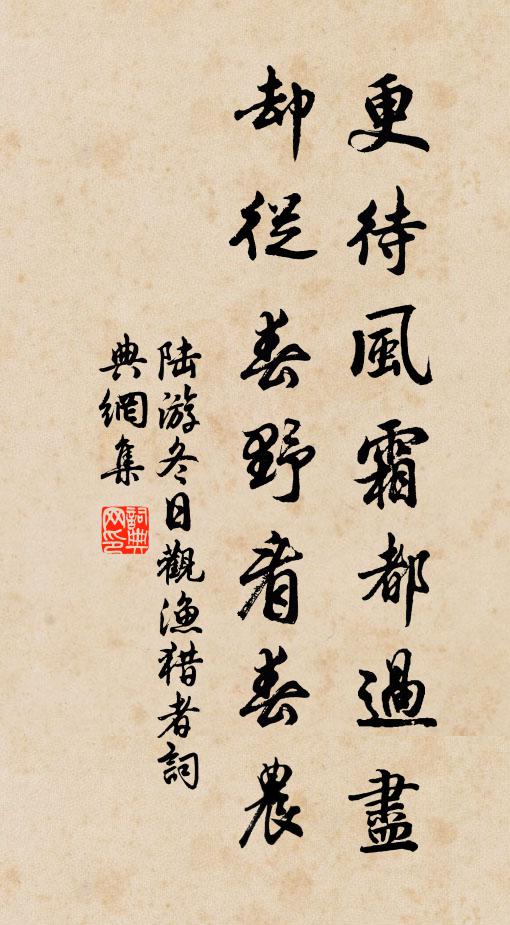 更待風霜都過盡
却從春野看春農
陸游冬日觀漁獵者詞
典網集
詞典
网印